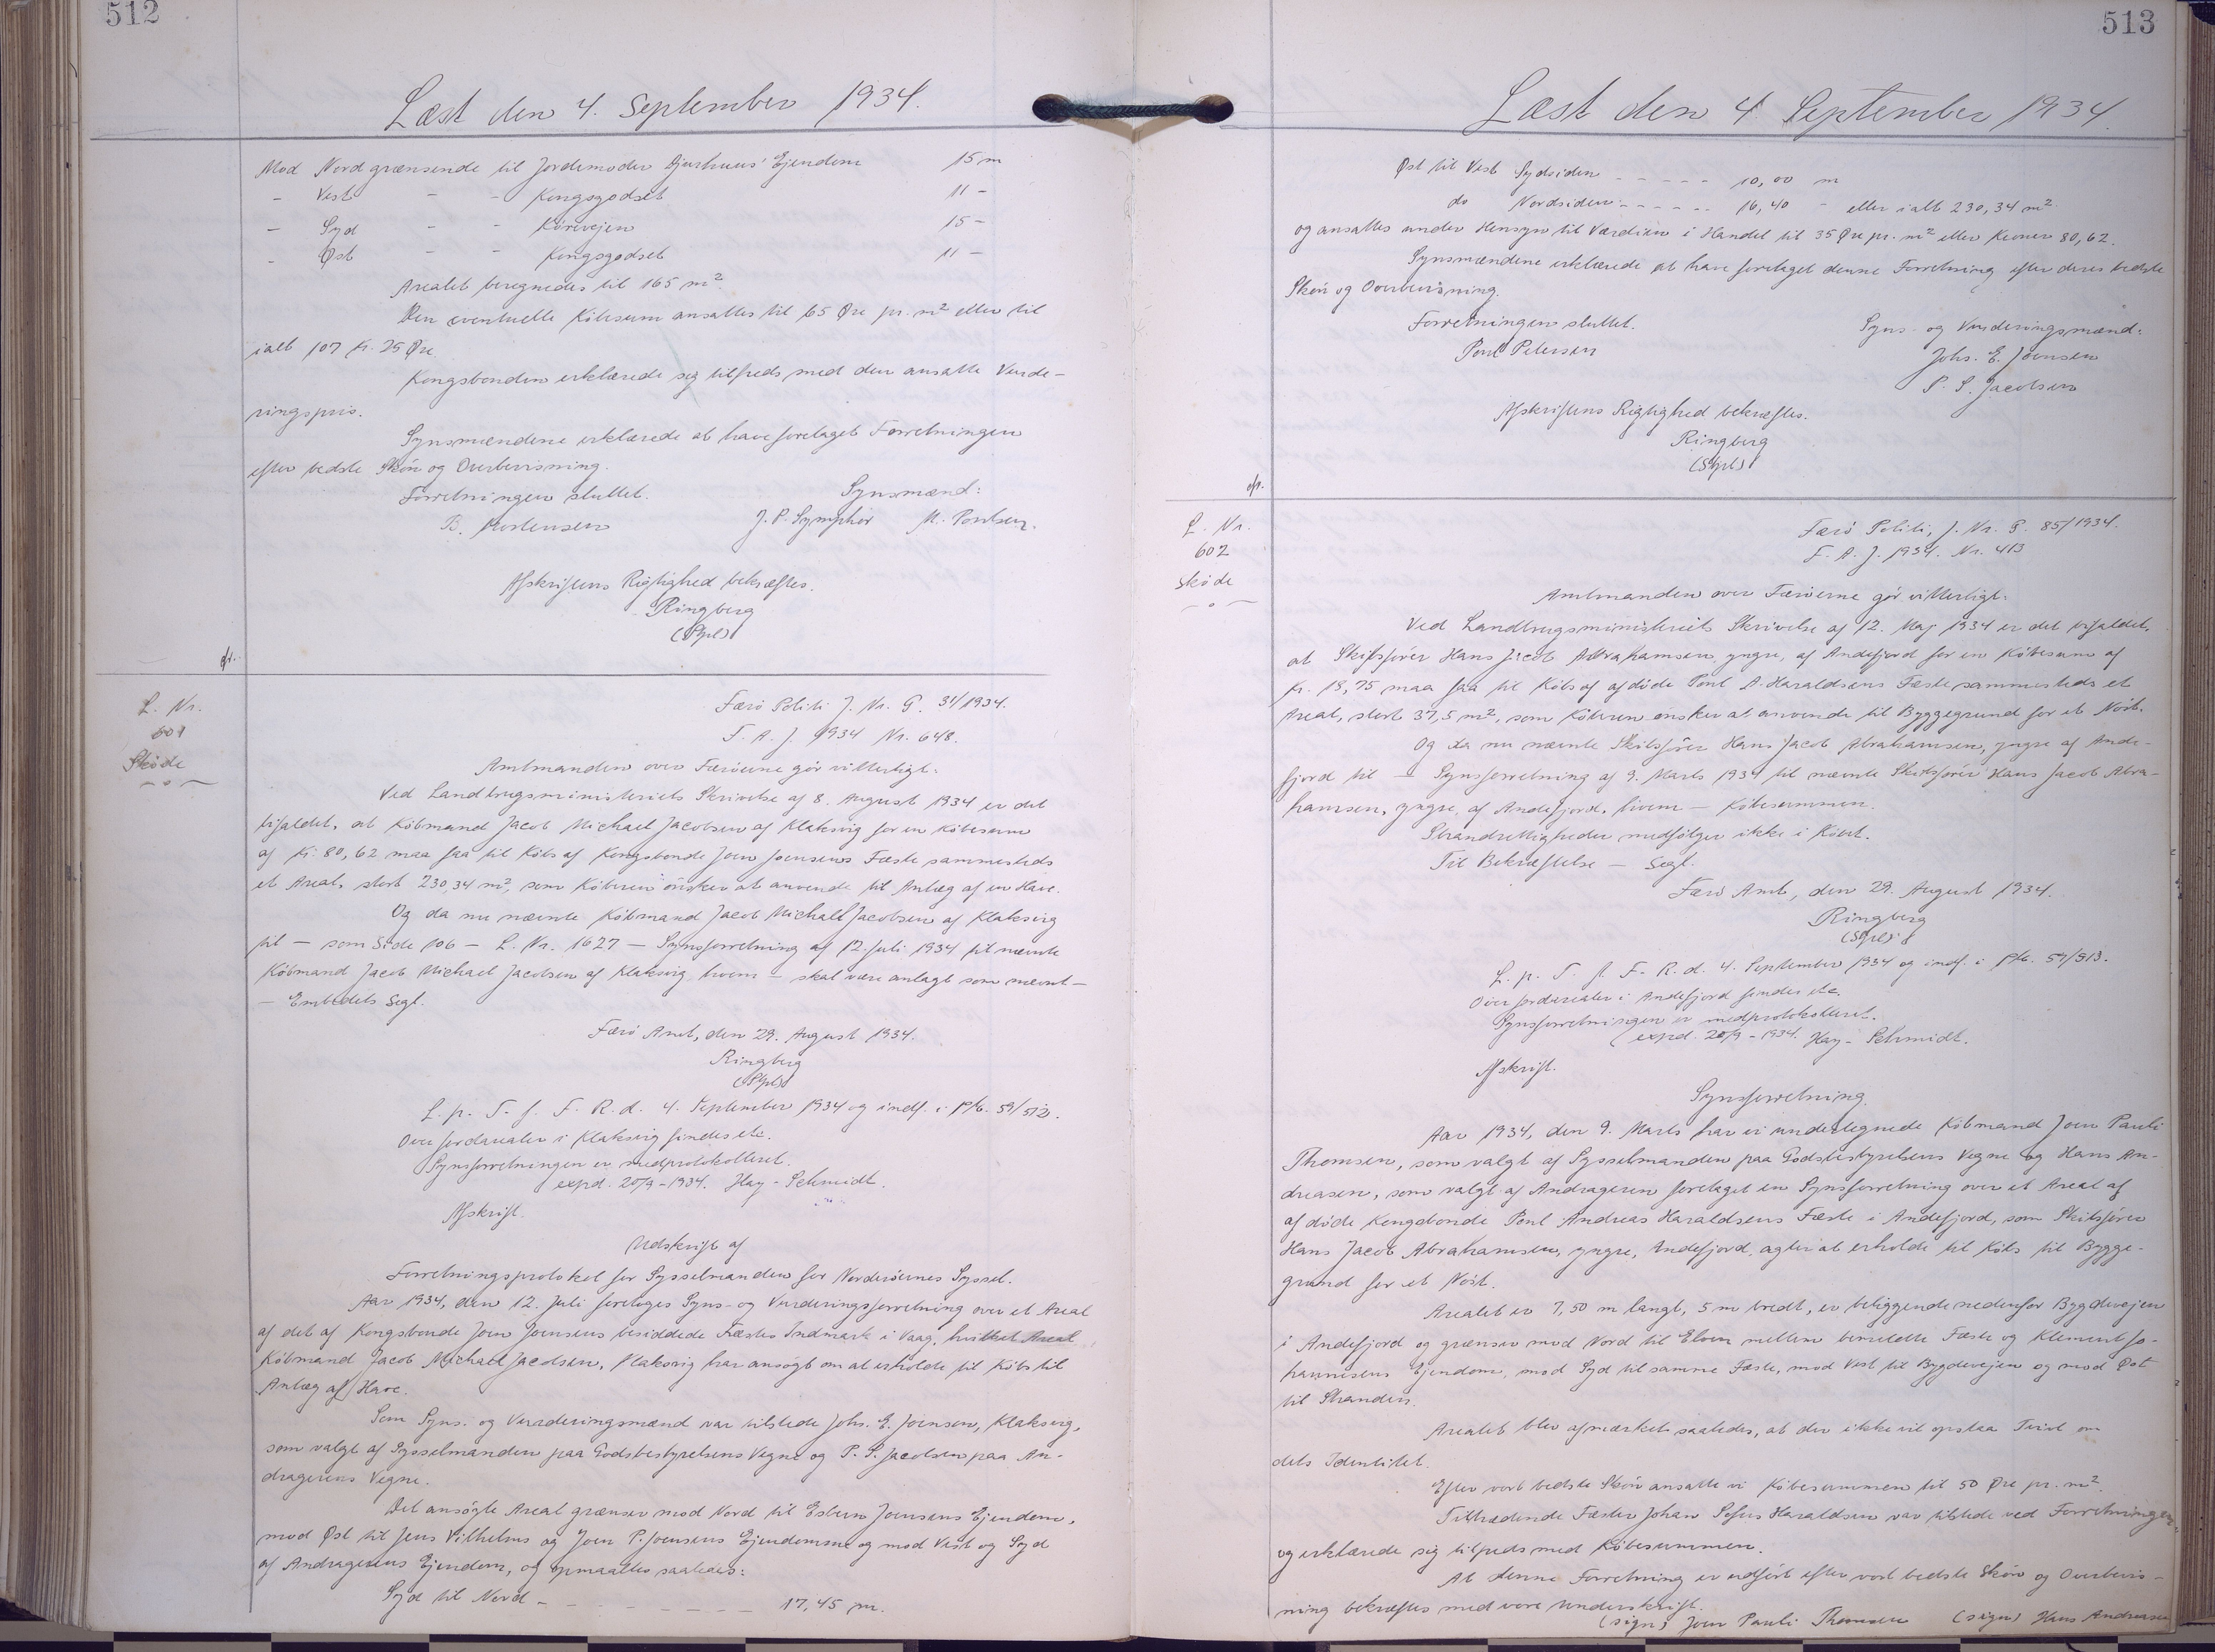 512
Læst den 4. September 1934.
Mod Nord grænsende til Jordemoder Djurhuus' Ejendom 15 m
- Vest - - Kongsgodset 11 -
- Syd - - Körevejen 15 -
- Øst - - Kongsgodset 11 -
Arealet beregnedes til 165 m².
Den eventuelle Köbesum ansattes til 65 Øre pr. m² eller til
ialt 107 Kr. 25 Øre.
Kongsbonden erklærede sig tilfreds med den ansatte Vurde-
ringspris.
Synsmændene erklærede at have foretaget Forretningen
efter bedste Skön og Overbevisning.
Forretningen sluttet. Synsmænd:
B. Mortensen J. P. Symphor M. Poulsen.
Afskriftens Rigtighed bekræftes.
Ringberg
L. Nr.
601
Sköde
Færö Politi J. Nr. G. 31/1934.
F. A. J. 1934 Nr. 648.
Amtmanden over Færöerne gör vitterligt:
Ved Landbrugsministeriets Skrivelse af 8. August 1934 er det
bifaldet, at Köbmand Jacob Michael Jacobsen af Klaksvig for en Köbesum
af Kr. 80,62 maa faa til Köbs af Kongsbonde Joen Joensens Fæste sammesteds
et Areal, stort 230,34 m², som Köberen önsker at anvende til Anlæg af en Have.
Og da nu nævnte Köbmand Jacob Michael Jacobsen af Klaksvig
til — som Side 106 — L. Nr. 1627 — Synsforretning af 12. Juli 1934 til nævnte
Köbmand Jacob Michael Jacobsen af Klaksvig, hvem — skal være anlagt som nævnt —
— Embedets Segl.
Færö Amt, den 29. August 1934.
Ringberg
L. p. T. f. F. R. d. 4. September 1934 og indf. i Ptk. 59/512.
Over Jordarealer i Klaksvig findes etc.
Synsforretningen er medprotokolleret.
expd. 20/9-1934. Hay-Schmidt.
Afskrift.
Udskrift af
Forretningsprotokol for Sysselmanden for Norderöernes Syssel.
Aar 1934, den 12. Juli foretoges Syns- og Vurderingsforretning over et Areal
af det af Kongsbonde Joen Joensens besiddede Fæstes Indmark i Vaag, hvilket Areal
Köbmand Jacob Michael Jacobsen, Klaksvig har ansögt om at erholde til Köbs til
Anlæg af Have.
Som Syns- og Vurderingsmænd var tilstede Johs. E. Joensen, Klaksvig,
som valgt af Sysselmanden paa Godsbestyrelsens Vegne og P. S. Jacobsen paa An-
dragerens Vegne.
Det ansögte Areal grænser mod Nord til Esbern Joensens Ejendom,
mod Øst til Jens Vilhelms og Joen P. Joensens Ejendomme og mod Vest og Syd
af Andragerens Ejendom, og opmaaltes saaledes:
Syd til Nord - - - - - - - 17,45 m.
513
Læst den 4 September 1934.
Øst til Vest Sydsiden - - - - - 10,00 m
do Nordsiden - - - - - - 16,40 - eller ialt 230,34 m².
og ansattes under Hensyn til Værdien i Handel til 35 Øre pr. m² eller Kroner 80,62.
Synsmændene erklærede at have foretaget denne Forretning efter deres bedste
Skön og Overbevisning.
Forretningen sluttet. Syns- og Vurderingsmænd:
Poul Petersen Johs. E. Joensen
P. S. Jacobsen
Afskriftens Rigtighed bekræftes.
Ringberg
L. Nr.
602
Sköde
Færö Politi, J. Nr. G. 85/1934.
F. A. J. 1934. Nr. 413
Amtmanden over Færöerne gör vitterligt:
Ved Landbrugsministeriets Skrivelse af 12. Maj 1934 er det bifaldet,
at Skibsförer Hans Jacob Abrahamsen, yngre, af Andefjord for en Köbesum af
Kr. 18,75 maa faa til Köbs af afdöde Poul A. Haraldsens Fæste sammesteds et
Areal, stort 37,5 m², som Köberen önsker at anvende til Byggegrund for et Nöst.
Og da nu nævnte Skibsförer Hans Jacob Abrahamsen, yngre af Ande-
fjord til — Synsforretning af 9. Marts 1934 til nævnte Skibsförer Hans Jacob Abra-
hamsen, yngre, af Andefjord, hvem — Köbesummen.
Strandrettigheder medfölger ikke i Köbet.
Til Bekræftelse — Segl.
Færö Amt, den 29. August 1934.
Ringberg
L. p. T. f. F. R. d. 4. September 1934 og indf. i Ptk. 59/513.
Over Jordarealer i Andefjord findes etc.
Synsforretningen er medprotokolleret.
expd. 20/9-1934. Hay-Schmidt.
Afskrift.
Synsforretning.
Aar 1934, den 9. Marts har vi undertegnede Köbmand Joen Pauli
Thomsen, som valgt af Sysselmanden paa Godsbestyrelsens Vegne og Hans An-
dreasen, som valgt af Andrageren foretaget en Synsforretning over et Areal af
afdöde Kongsbonde Poul Andreas Haraldsens Fæste i Andefjord, som Skibsförer
Hans Jacob Abrahamsen, yngre, Andefjord, agter at erholde til Köbs til Bygge-
grund for et Nöst.
Arealet er 7,50 m langt, 5 m bredt, er beliggende nedenfor Bygdevejen
i Andefjord og grænser mod Nord til Elven mellem bemeldte Fæste og Klement Jo-
hannesens Ejendom, mod Syd til samme Fæste, mod Vest til Bygdevejen og mod Øst
til Stranden.
Arealet blev afmærket saaledes, at der ikke vil opstaa Tvivl om
dets Identitet.
Efter vort bedste Skön ansatte vi Köbesummen til 50 Øre pr. m².
Tiltrædende Fæster Johan Sofus Haraldsen var tilstede ved Forretningen
og erklærede sig tilfreds med Köbesummen.
At denne Forretning er udfört efter vort bedste Skön og Overbevis-
ning bekræftes med vore Underskrift.
(sign) Joen Pauli Thomsen (sign) Hans Andreasen